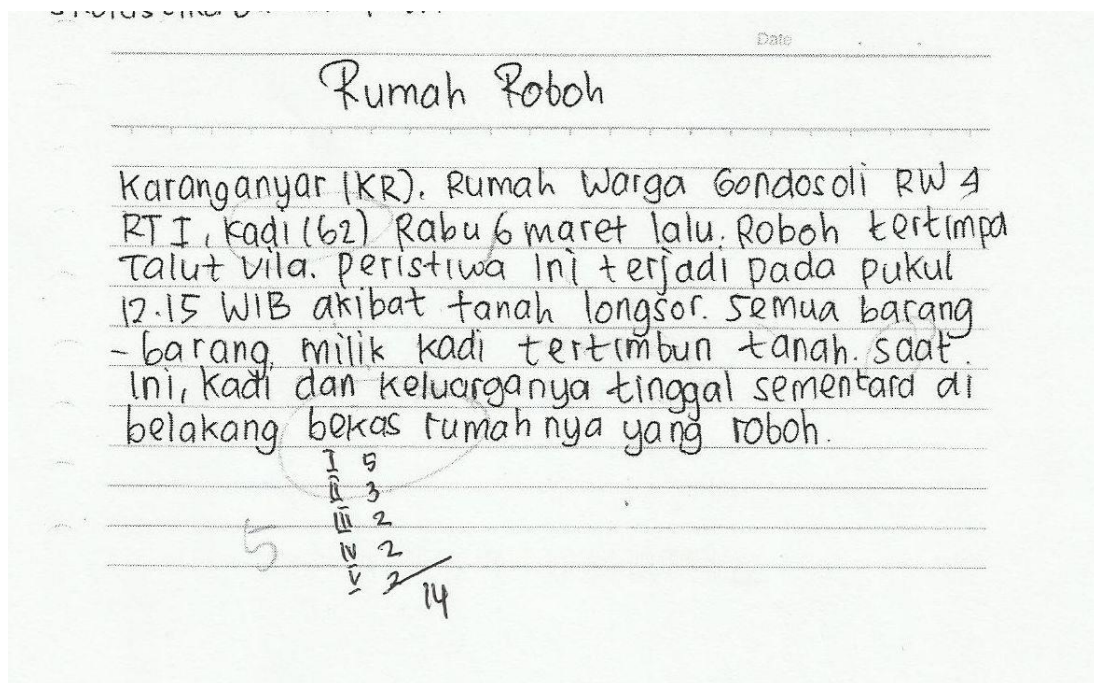 Date
Rumah Roboh
Karanganyar (KR). Rumah Warga Gondosoli RW 4
RT I, Kadi (62) Rabu 6 maret lalu. Roboh tertimpa
Talut vila. peristiwa Ini terjadi pada pukul
12.15 WIB akibat tanah longsor. Semua barang
- barang milik kadi tertimbun tanah. saat
Ini, Kadi dan keluarganya tinggal sementara di
belakang bekas rumahnya yang roboh.
I 5
II 3
III 2
5 IV 2
V 2
14